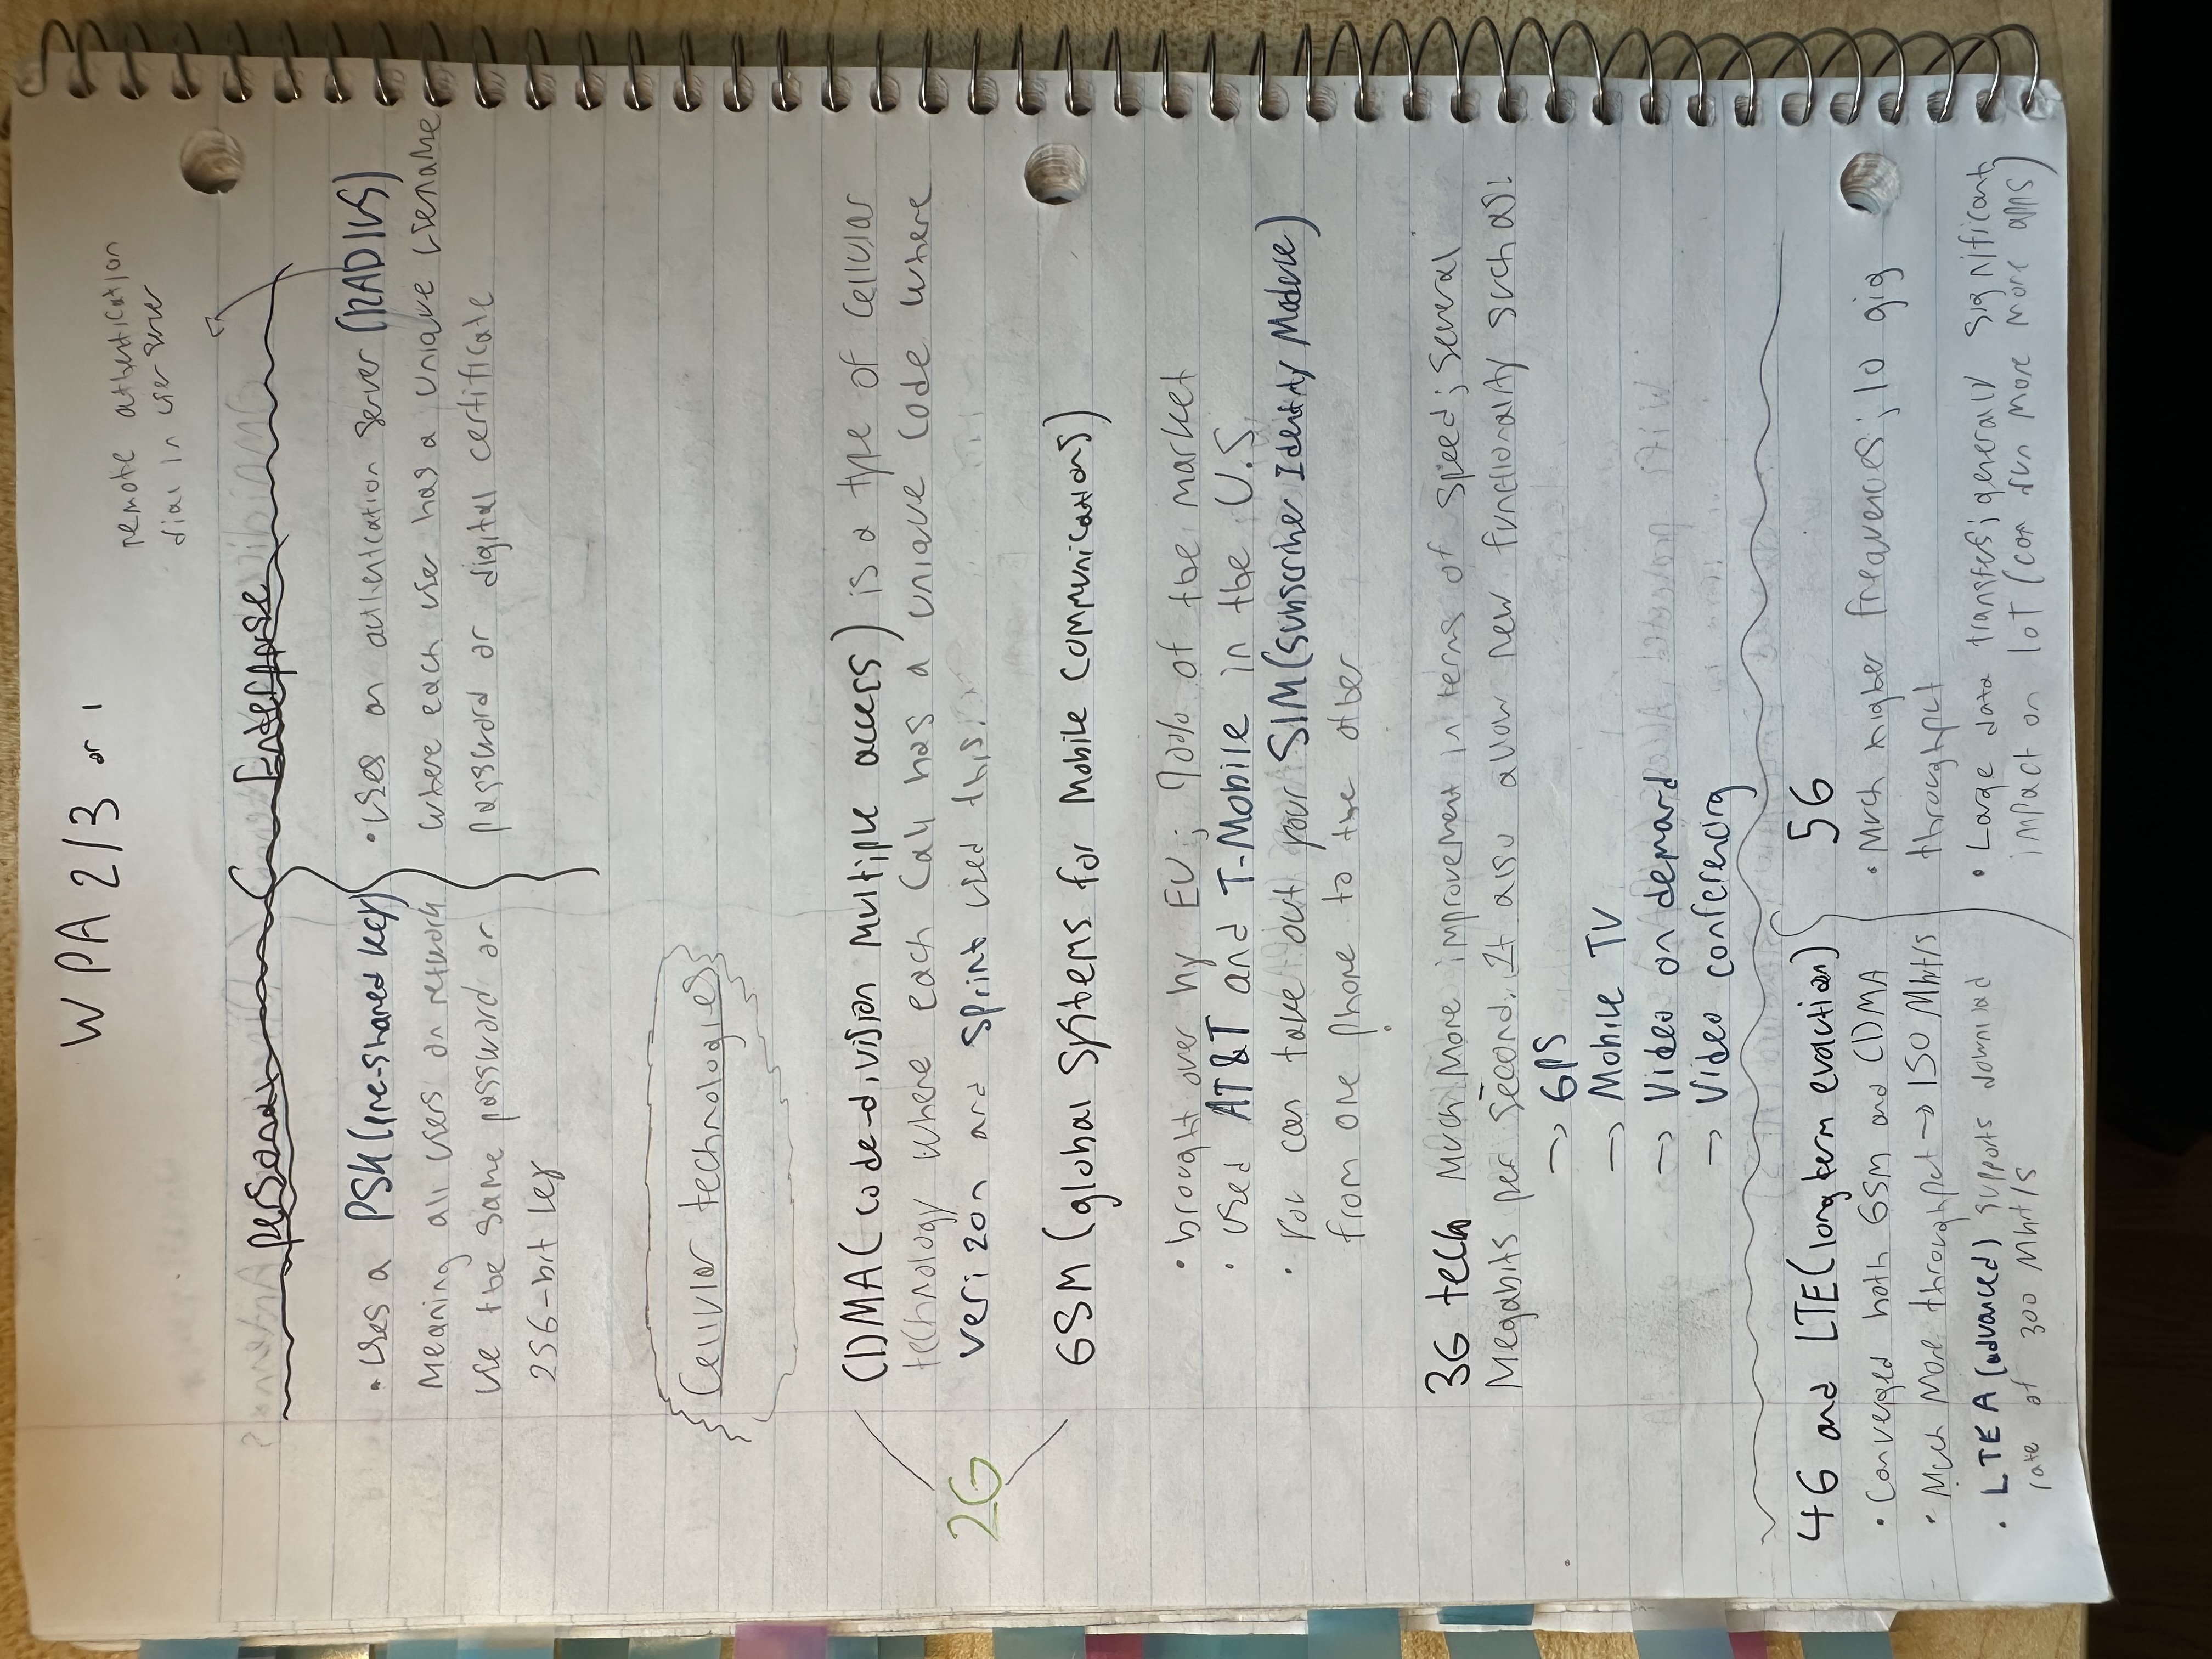 WPA 2/3 or 1
remote authentication
dial in user server
personal
Enterprise
• Uses a PSK (pre-shared key)
Meaning all users on network
use the same password or
256-bit key
• Uses an authentication server (RADIUS)
where each user has a unique username
password or digital certificate
Cellular technologies
2G
CDMA (code-division multiple access) is a type of cellular
technology where each call has a unique code where
verizon and sprint used this.
GSM (global systems for Mobile Communications)
• brought over by EU; 90% of the market
• used AT&T and T-Mobile in the U.S.
• You can take out your SIM (Subscriber Identity Module)
from one phone to the other
3G tech Much More improvement in terms of speed; several
Megabits per second. It also allow new functionality such as:
→ GPS
→ Mobile TV
→ Video on demand
→ Video conferencing
4G and LTE (long term evolution)
• Converged both GSM and CDMA
• Much More throughput → 150 Mbit/s
• LTE A (advanced) supports download
rate of 300 Mbit/s
5G
• Much higher frequencies; 10 gig
throughput
• Large data transfers; generally significant
impact on IoT (can run more more apps)